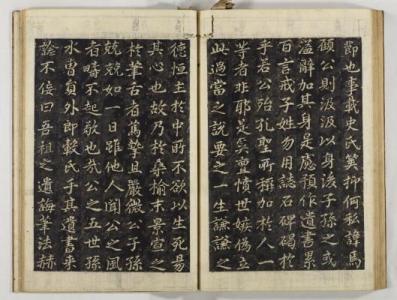 節也事載史氏蓋抑何私諱焉
顧公則汲汲以身後子孫之或
溢辭加其身是應預作遺書累
百言戒子姓勿用誌石碑碣於
乎若公殆孔聖所稱加於人一
等者非耶是憤世嫉偽立
此過當之說要之一生謙謙之
德恒主於中時不欲以生死易
其心也故乃於桑榆末景宣之
於筆古者篤摯且嚴微公子孫
兢兢如一日雖他人聞公之風
者疇不起敬也哉公之五世孫
水曹員外即毅氏手其遺書來
諗不佞曰吾祖之遺誨筆法赫